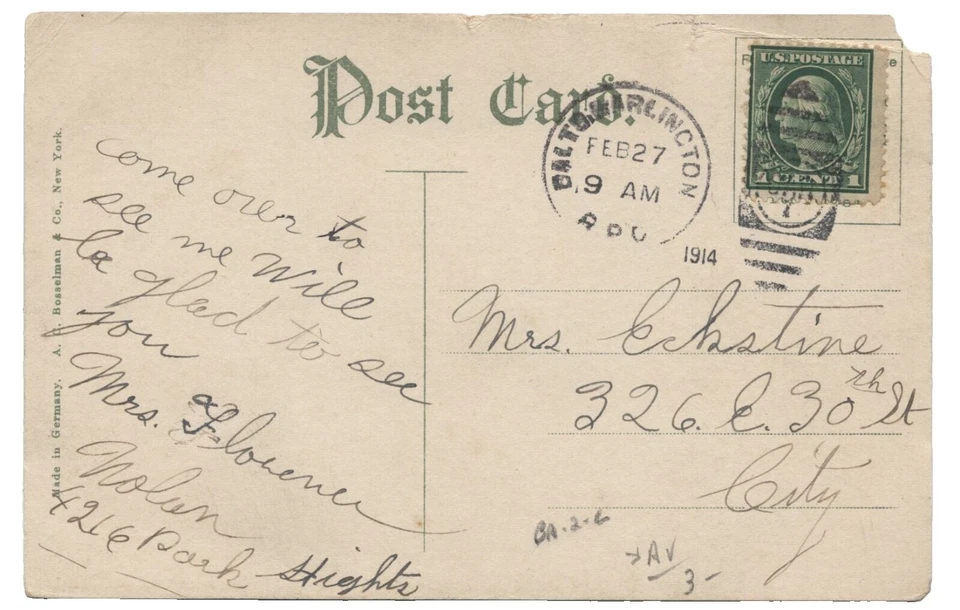 Post Card.
BALTO. & ARLINGTON
FEB 27
9 AM
R P O
1914
U.S. POSTAGE
1 CENT 1
come over to
see me Will
be glad to see
you
Mrs. Florence
Nolan
4216 Park Hights
Mrs. Eckstine
326. E. 30th St
City
Made in Germany, A. C. Bosselman & Co., New York.
BA-2-c
AV
3-